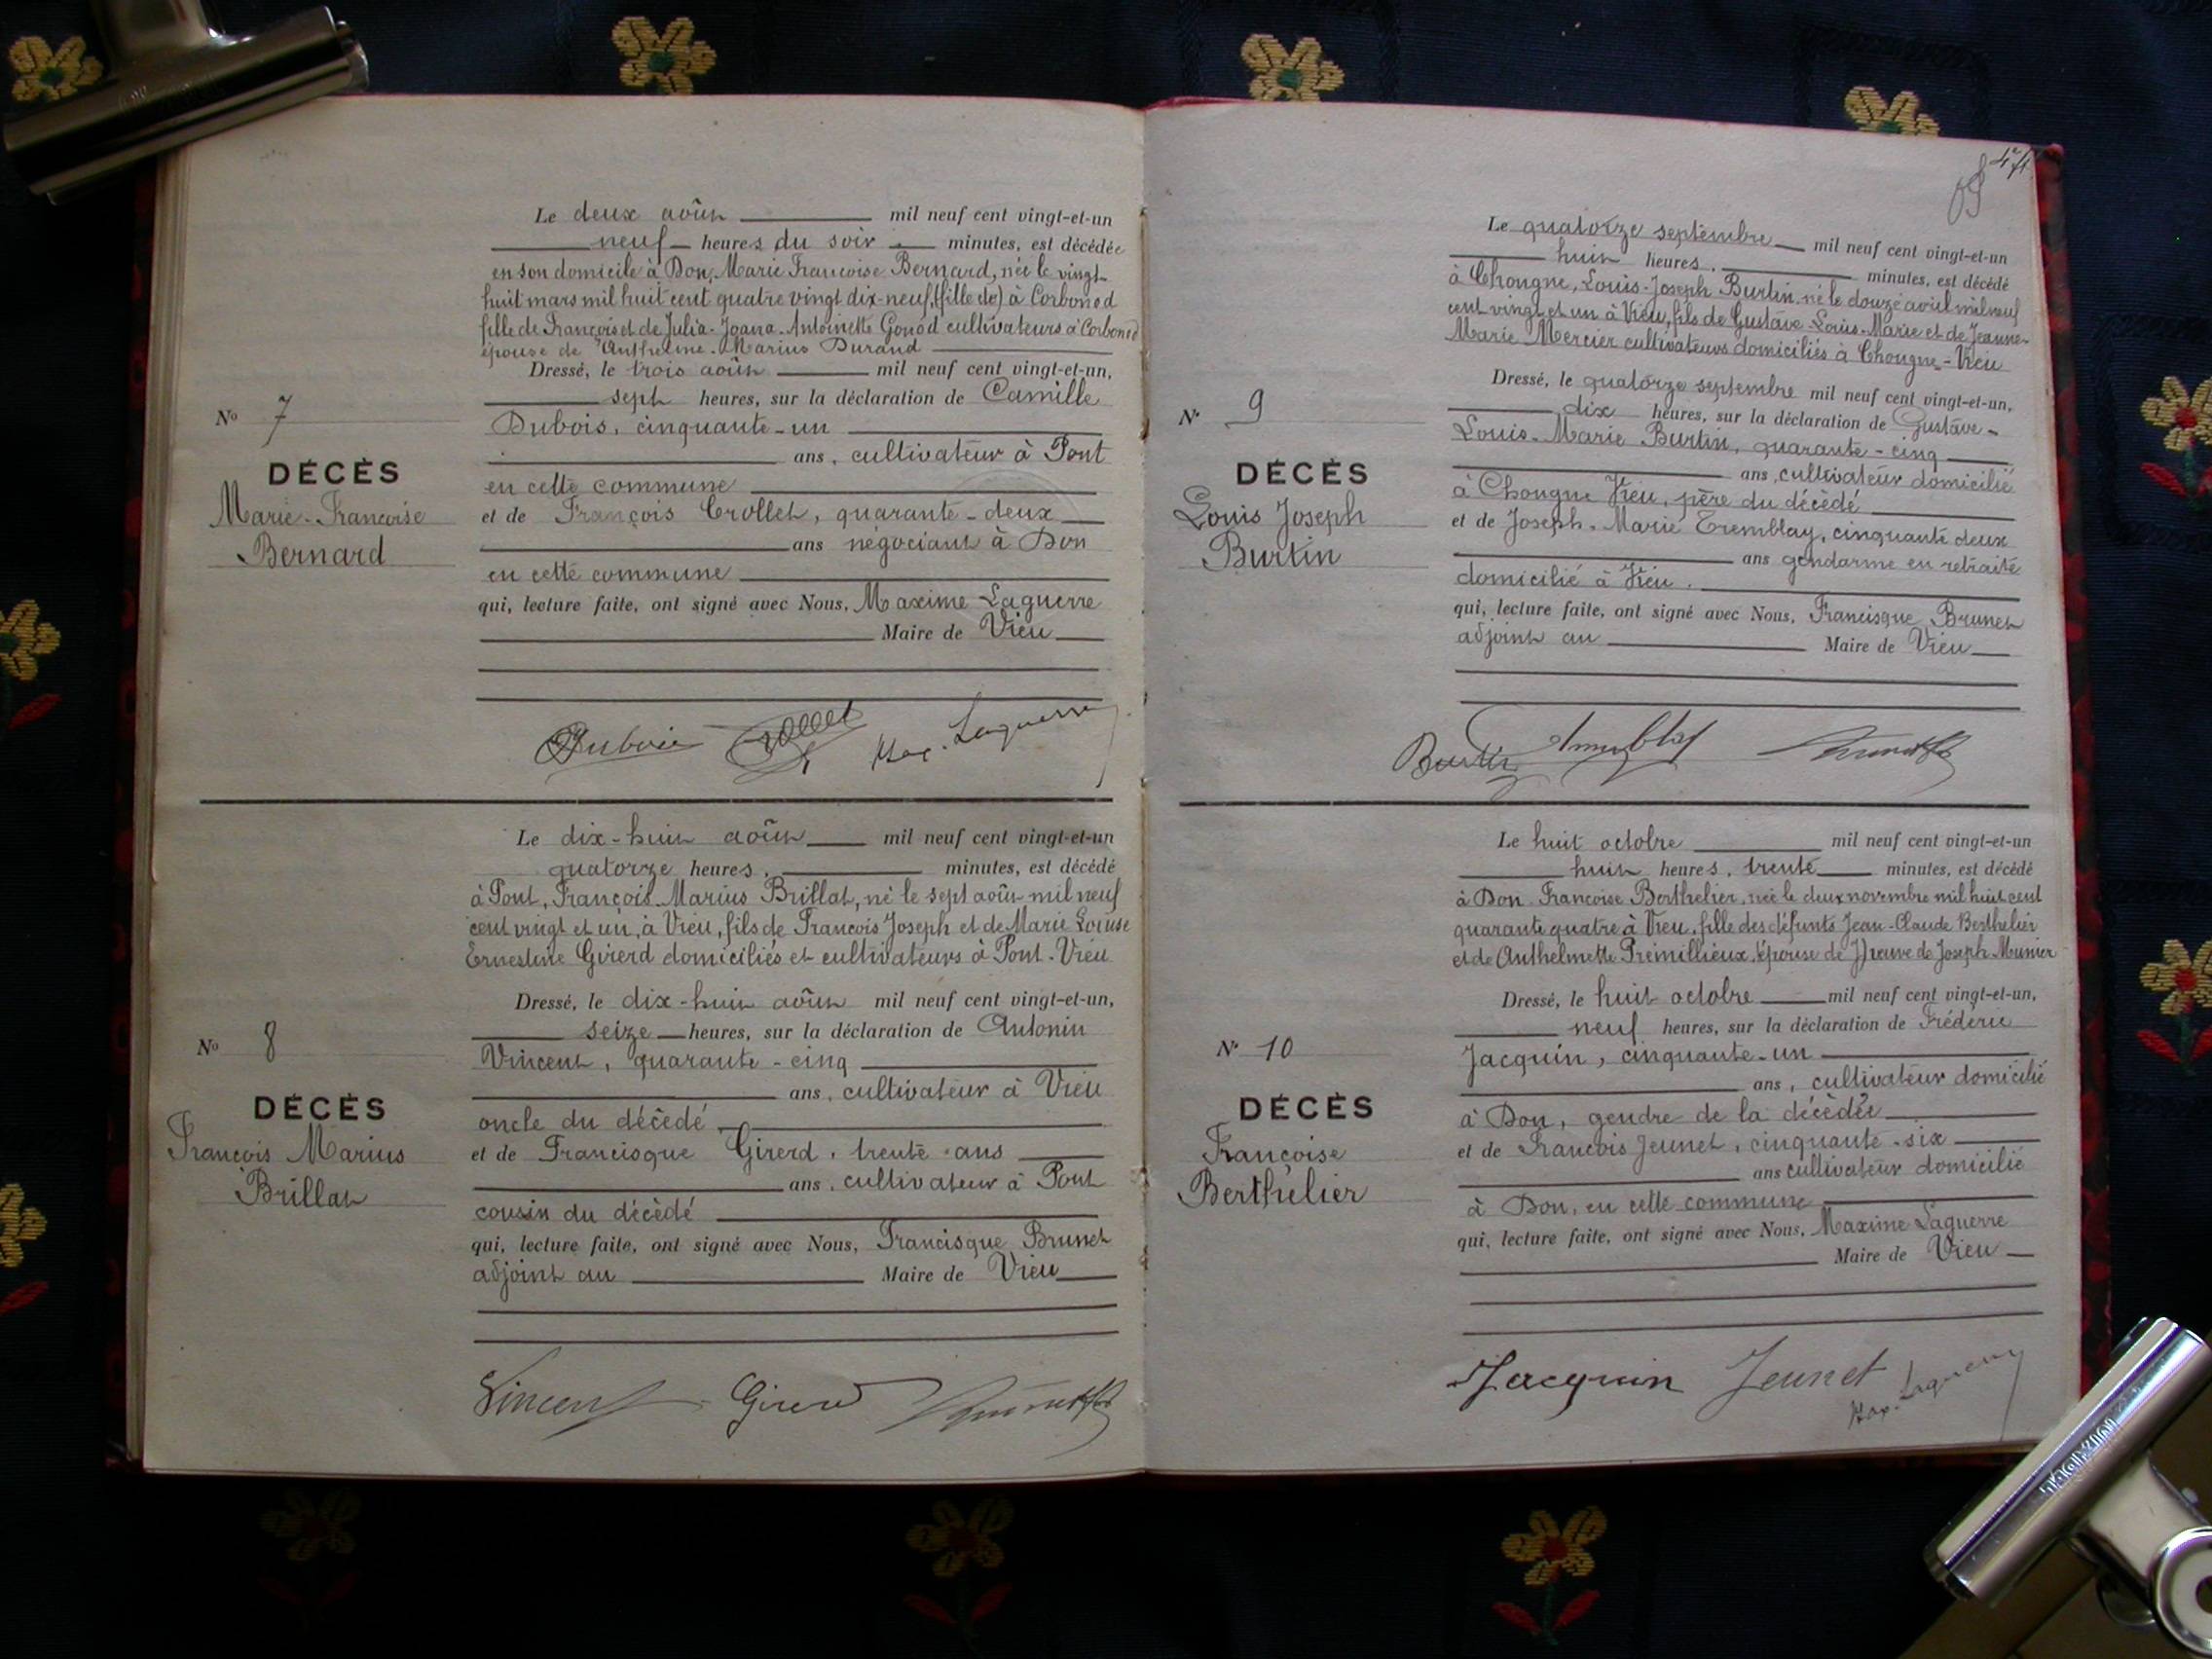 Le deux août mil neuf cent vingt-et-un
neuf heures du soir minutes, est décédée
en son domicile à Don, Marie Francoise Bernard, née le vingt-
huit mars mil huit cent quatre vingt dix-neuf, (fille de) à Corbonod
fille de François et de Julia-Joana-Antoinette Gonod cultivateurs à Corbonod
épouse de Anthelme-Marius Durand
Dressé, le trois août mil neuf cent vingt-et-un,
sept heures, sur la déclaration de Camille
Dubois, cinquante-un
ans, cultivateur à Pont
en cette commune
et de François Crollet, quarante-deux
ans négociant à Don
en cette commune
qui, lecture faite, ont signé avec Nous, Maxime Laguerre
Maire de Vieu
No 7
DÉCÈS
Marie-Francoise
Bernard
Dubois Crollet Max. Laguerre
Le dix-huit août mil neuf cent vingt-et-un
quatorze heures, minutes, est décédé
à Pont, François-Marius Brillat, né le sept août mil neuf
cent vingt et un, à Vieu, fils de Francois Joseph et de Marie Louise
Ernestine Girerd domiciliés et cultivateurs à Pont-Vieu
Dressé, le dix-huit août mil neuf cent vingt-et-un,
seize heures, sur la déclaration de Antonin
Vincent, quarante-cinq
ans, cultivateur à Vieu
oncle du décédé
et de Francisque Girerd, trente ans
ans, cultivateur à Pont
cousin du décédé
qui, lecture faite, ont signé avec Nous, Francisque Brunet
adjoint au Maire de Vieu
No 8
DÉCÈS
Francois Marius
Brillat
Vincent Girerd
47
Le quatorze septembre mil neuf cent vingt-et-un
huit heures, minutes, est décédé
à Chongne, Louis-Joseph Burtin, né le douze avril mil neuf
cent vingt et un à Vieu, fils de Gustave-Louis-Marie et de Jeanne-
Marie Mercier cultivateurs domiciliés à Chongne-Vieu
Dressé, le quatorze septembre mil neuf cent vingt-et-un,
dix heures, sur la déclaration de Gustave-
Louis-Marie Burtin, quarante-cinq
ans, cultivateur domicilié
à Chongne Vieu, père du décédé
et de Joseph-Marie Tremblay, cinquante deux
ans gendarme en retraite
domicilié à Vieu.
qui, lecture faite, ont signé avec Nous, Francisque Brunet
adjoint au Maire de Vieu
No 9
DÉCÈS
Louis Joseph
Burtin
Burtin Tremblay
Le huit octobre mil neuf cent vingt-et-un
huit heures, trente minutes, est décédé
à Don Francoise Berthelier, née le deux novembre mil huit cent
quarante quatre à Vieu, fille des défunts Jean-Claude Berthelier
et de Anthelmette Prémillieux, (épouse de) veuve de Joseph Munier
Dressé, le huit octobre mil neuf cent vingt-et-un,
neuf heures, sur la déclaration de Frédéric
Jacquin, cinquante-un
ans, cultivateur domicilié
à Don, gendre de la décédée
et de Francois Jeunet, cinquante-six
ans cultivateur domicilié
à Don, en cette commune
qui, lecture faite, ont signé avec Nous, Maxime Laguerre
Maire de Vieu
No 10
DÉCÈS
Françoise
Berthelier
Jacquin Jeunet Max. Laguerre